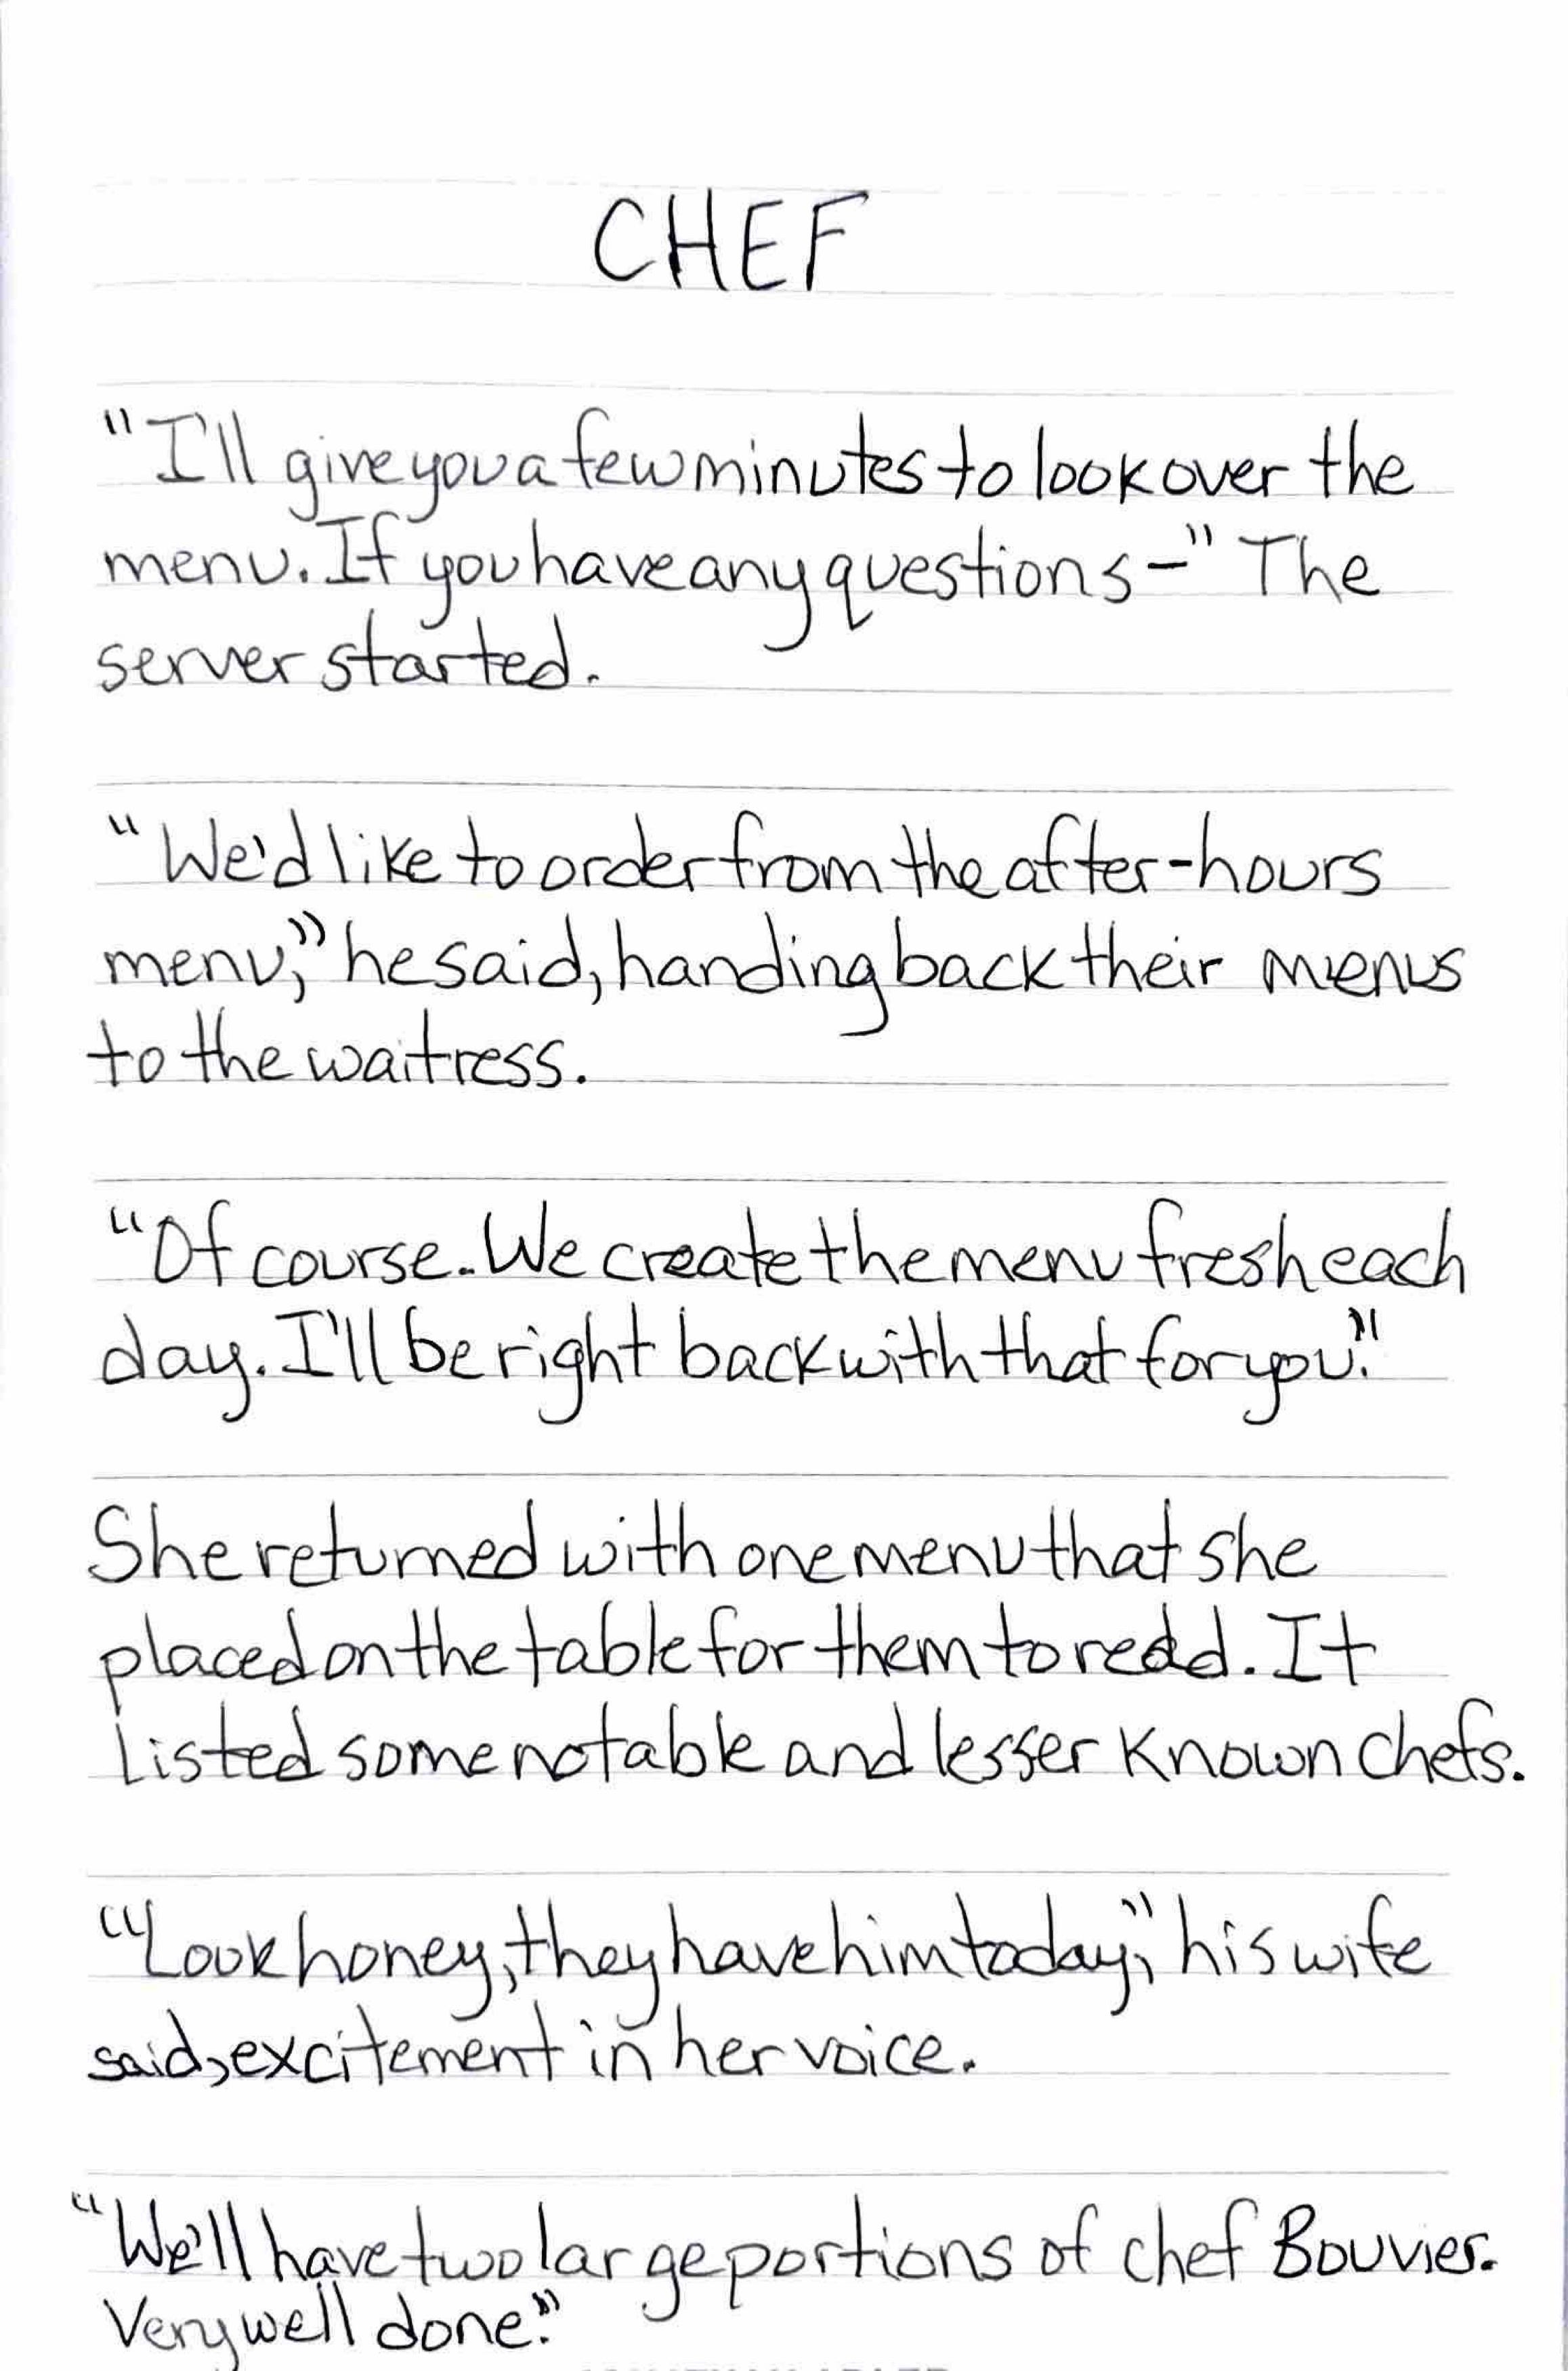 CHEF
"I'll give you a few minutes to look over the
menu. If you have any questions-" The
server started.
"We'd like to order from the after-hours
menu," he said, handing back their menus
to the waitress.
"Of course. We create the menu fresh each
day. I'll be right back with that for you."
She returned with one menu that she
placed on the table for them to read. It
listed some notable and lesser known chefs.
"Look honey, they have him today," his wife
said, excitement in her voice.
"We'll have two large portions of chef Bouvier.
Very well done."